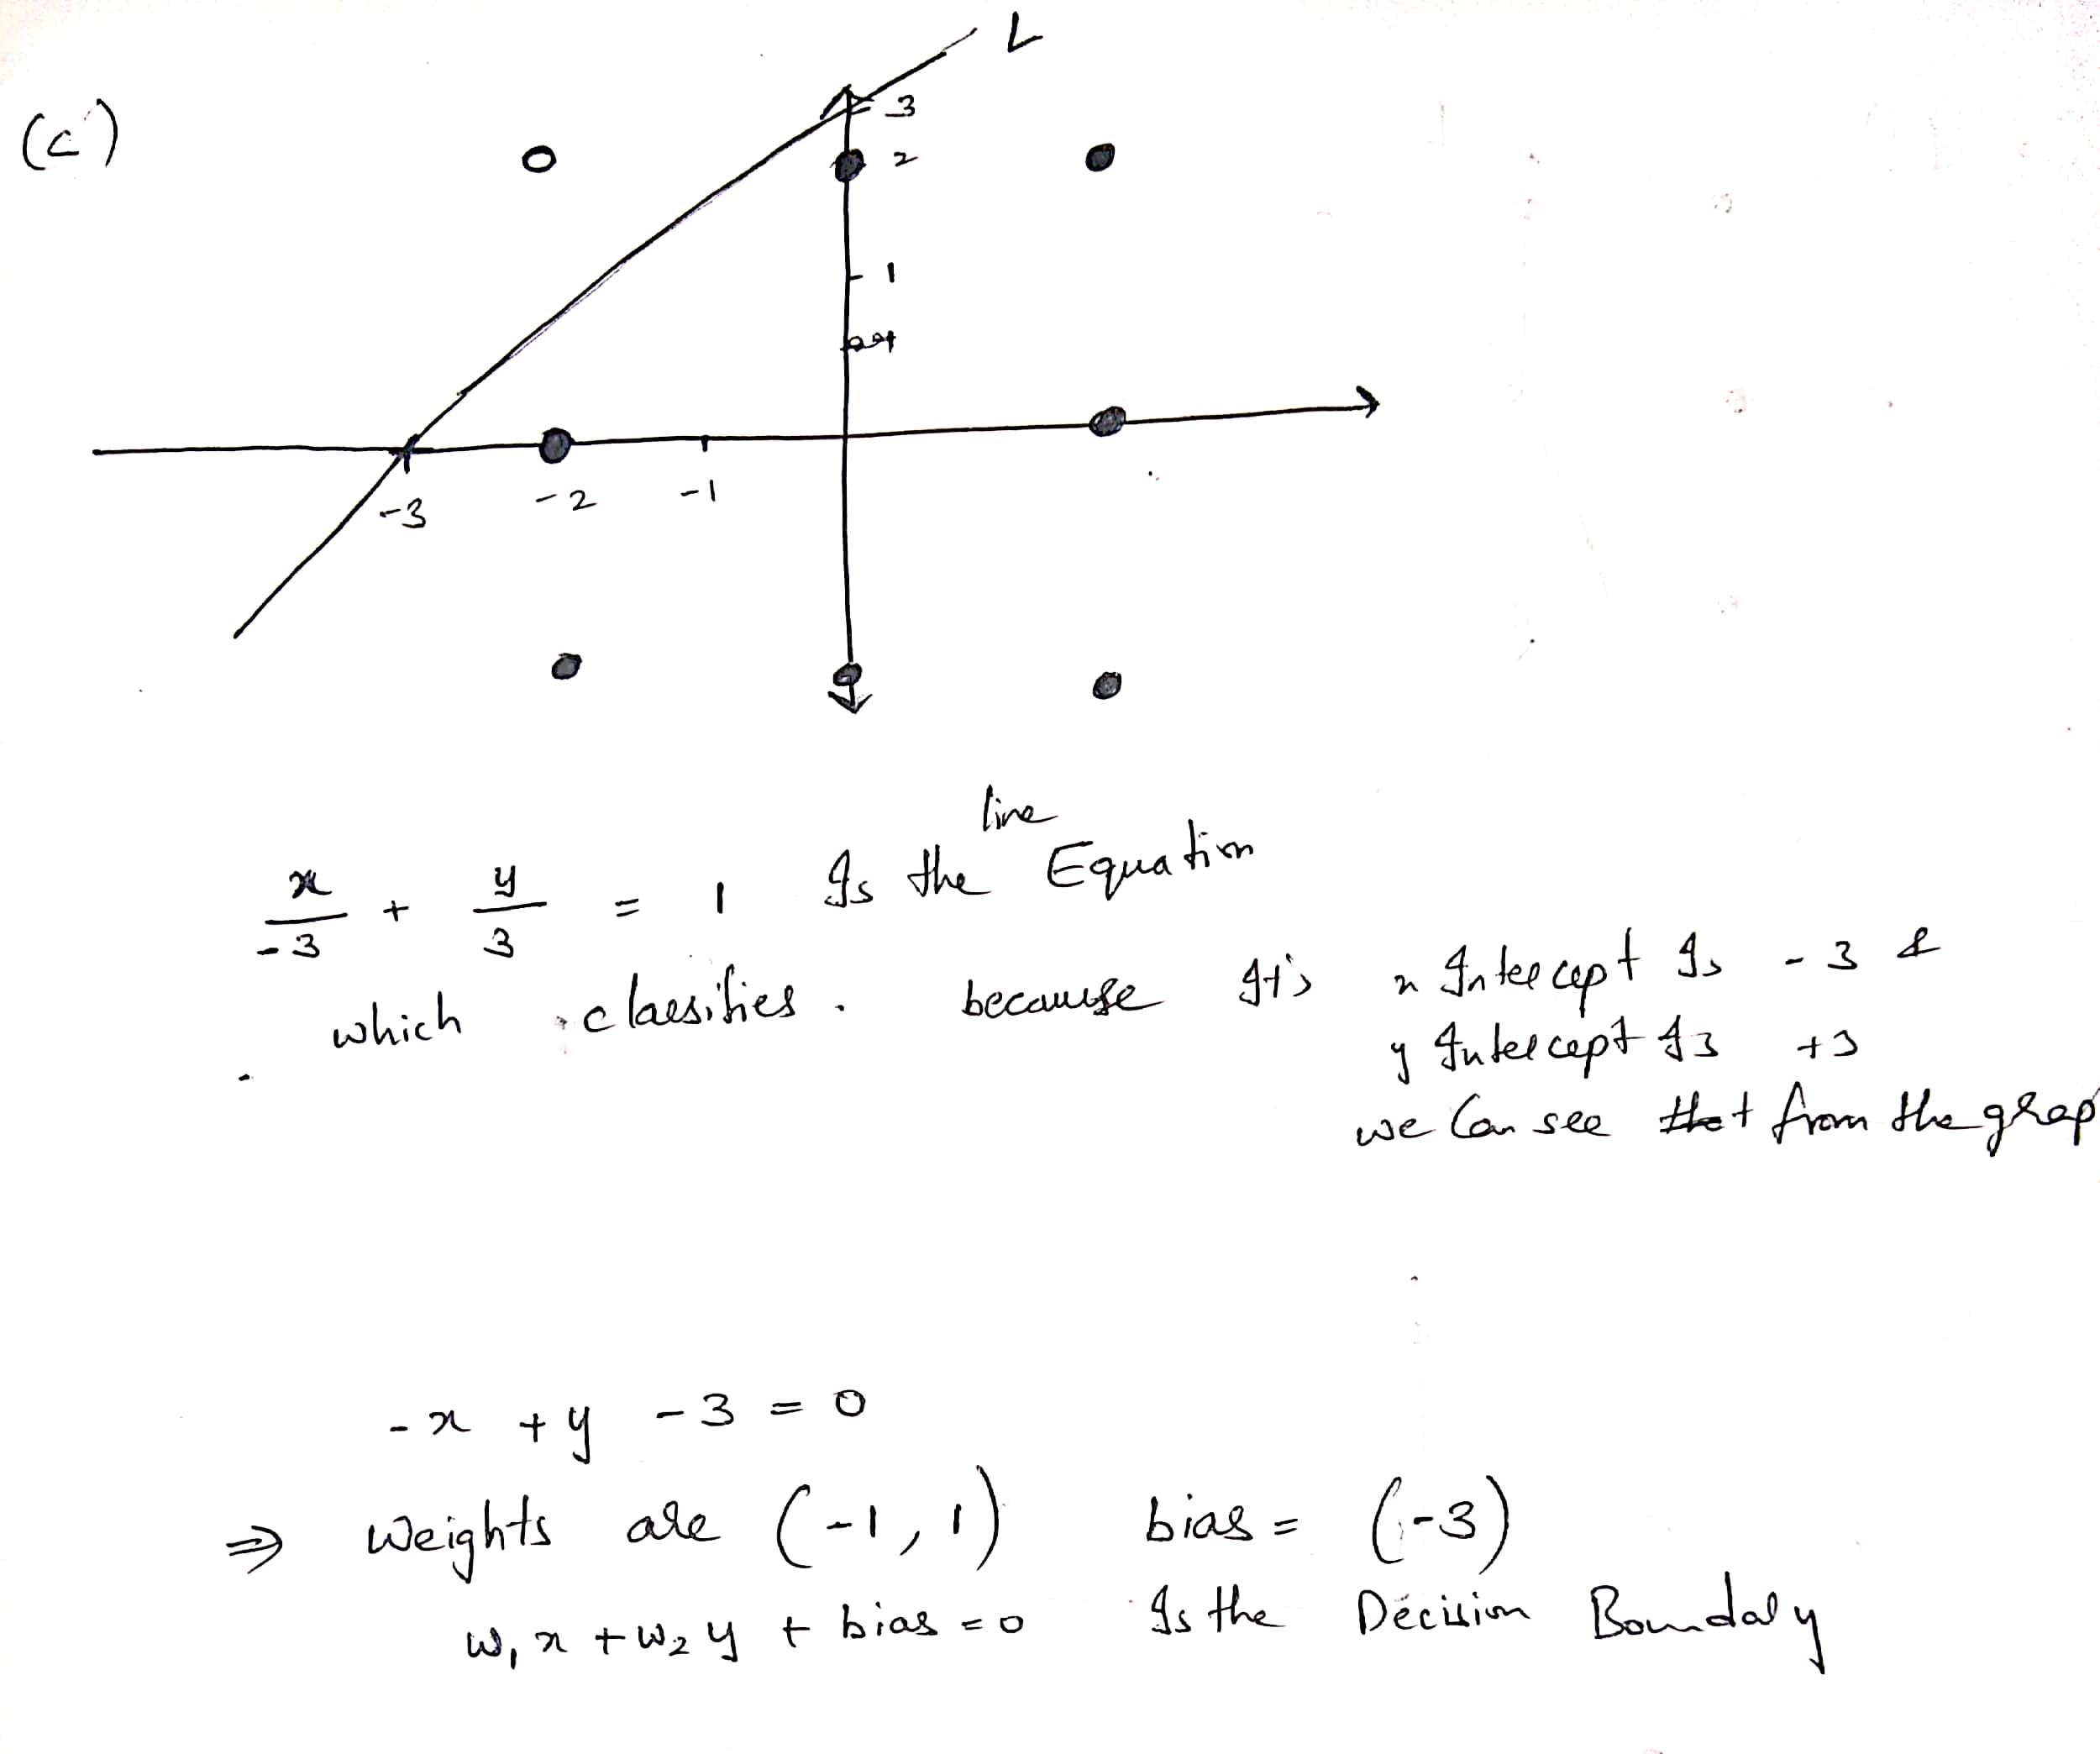 L
(c)
3
2
1
-3 -2 -1
line
x/-3 + y/3 = 1 Is the Equation
which classifies. because It's x Intercept Is -3 &
y Intercept Is +3
we Can see that from the grap
-x + y - 3 = 0
⇒ Weights are (-1, 1) bias = (-3)
w₁x + w₂y + bias = 0 Is the Decision Boundary